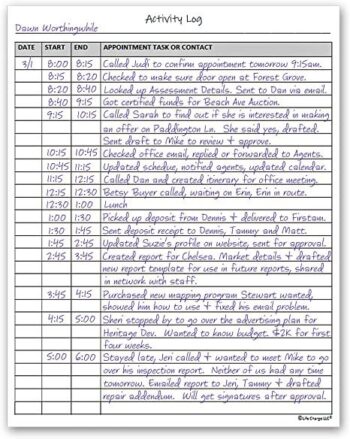 Activity Log
Dawn Worthingwhile
DATE START END APPOINTMENT TASK OR CONTACT
3/1 8:00 8:15 Called Judi to confirm appointment tomorrow 9:15am.
8:15 8:20 Checked to make sure door open at Forest Grove.
8:20 8:40 Looked up Assessment Details. Sent to Dan via email.
8:40 9:15 Got certified funds for Beach Ave Auction.
9:15 10:15 Called Sarah to find out if she is interested in making
an offer on Paddington Ln. She said yes, drafted.
Sent draft to Mike to review + approve.
10:15 10:45 Checked office email, replied or forwarded to Agents.
10:45 11:15 Updated schedule, notified agents, updated calendar.
11:15 12:15 Called Dan and created itinerary for office meeting.
12:15 12:30 Betsy Buyer called, waiting on Erin, Erin in route.
12:30 1:00 Lunch
1:00 1:30 Picked up deposit from Dennis + delivered to Firstam.
1:30 1:45 Sent deposit receipt to Dennis, Tammy and Matt.
1:45 2:45 Updated Suzie's profile on website, sent for approval.
2:45 3:45 Created report for Chelsea. Market details + drafted
new report template for use in future reports, shared
in network with staff.
3:45 4:15 Purchased new mapping program Stewart wanted,
showed him how to use + fixed his email problem.
4:15 5:00 Sheri stopped by to go over the advertising plan for
Heritage Dev. Wanted to know budget. $2K for first
four weeks.
5:00 6:00 Stayed late, Jeri called + wanted to meet Mike to go
over his inspection report. Neither of us had any time
tomorrow. Emailed report to Jeri, Tammy + drafted
repair addendum. Will get signatures after approval.